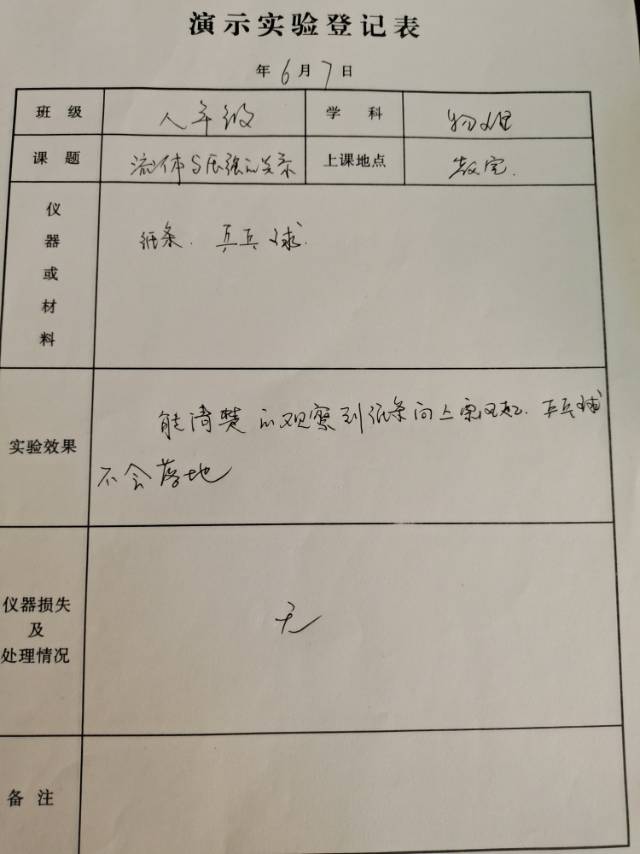 演示实验登记表
年6月7日
班级 八年级 学科 物理
课题 流体与压强的关系 上课地点 教室.
仪器或材料 纸条. 乒乓球.
实验效果 能清楚的观察到纸条向上飘起. 乒乓球
不会落地
仪器损失
及
处理情况 无
备注